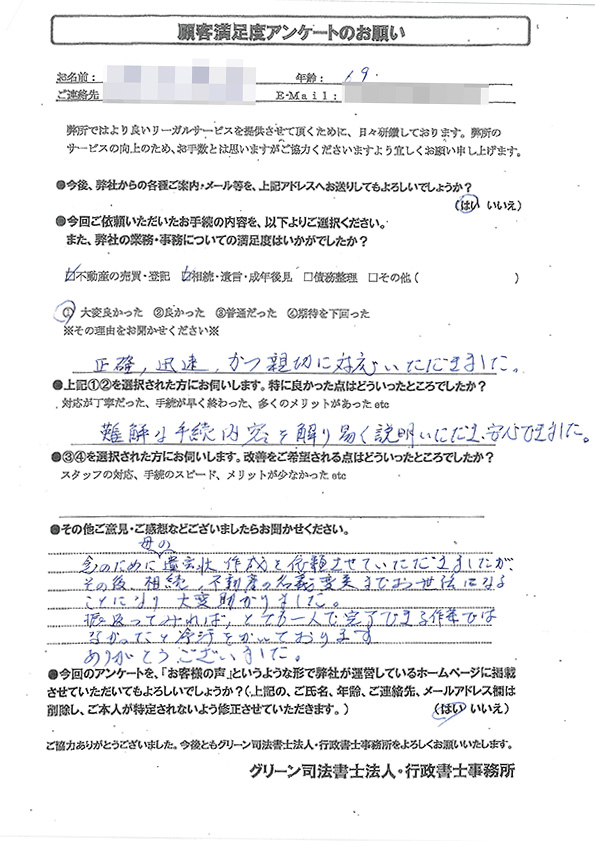 顧客満足度アンケートのお願い
お名前：　年齢：
ご連絡先　E-Mail：
弊所ではより良いリーガルサービスを提供させて頂くために、日々研鑽しております。弊所の
サービスの向上のため、お手数とは思いますがご協力くださいますよう宜しくお願い申し上げます。
●今後、弊社からの各種ご案内・メール等を、上記アドレスへお送りしてもよろしいでしょうか？
（はい いいえ）
●今回ご依頼いただいたお手続の内容を、以下よりご選択ください。
また、弊社の業務・事務についての満足度はいかがでしたか？
☑不動産の売買・登記　☑相続・遺言・成年後見　□債務整理　□その他（　　　）
① 大変良かった　②良かった　③普通だった　④期待を下回った
※その理由をお聞かせください※
正確，迅速，かつ親切に対応いただきました。
●上記①②を選択された方にお伺いします。特に良かった点はどういったところでしたか？
対応が丁寧だった、手続が早く終わった、多くのメリットがあった etc
難解な手続内容を解り易く説明いただき、安心できました。
●③④を選択された方にお伺いします。改善をご希望される点はどういったところでしたか？
スタッフの対応、手続のスピード、メリットが少なかった etc
●その他ご意見・ご感想などございましたらお聞かせください。
母の
念のために遺言状作成を依頼させていただきましたが、
その後、相続，不動産の名義変更までお世話になる
ことになり 大変助かりました。
振返ってみれば，とても一人で完了できる作業では
なかったと冷汗をかいております
ありがとうございました。
●今回のアンケートを、「お客様の声」というような形で弊社が運営しているホームページに掲載
させていただいてもよろしいでしょうか？（上記の、ご氏名、年齢、ご連絡先、メールアドレス欄は
削除し、ご本人が特定されないよう修正させていただきます。）　（はい いいえ）
ご協力ありがとうございました。今後ともグリーン司法書士法人・行政書士事務所をよろしくお願いいたします。
グリーン司法書士法人・行政書士事務所